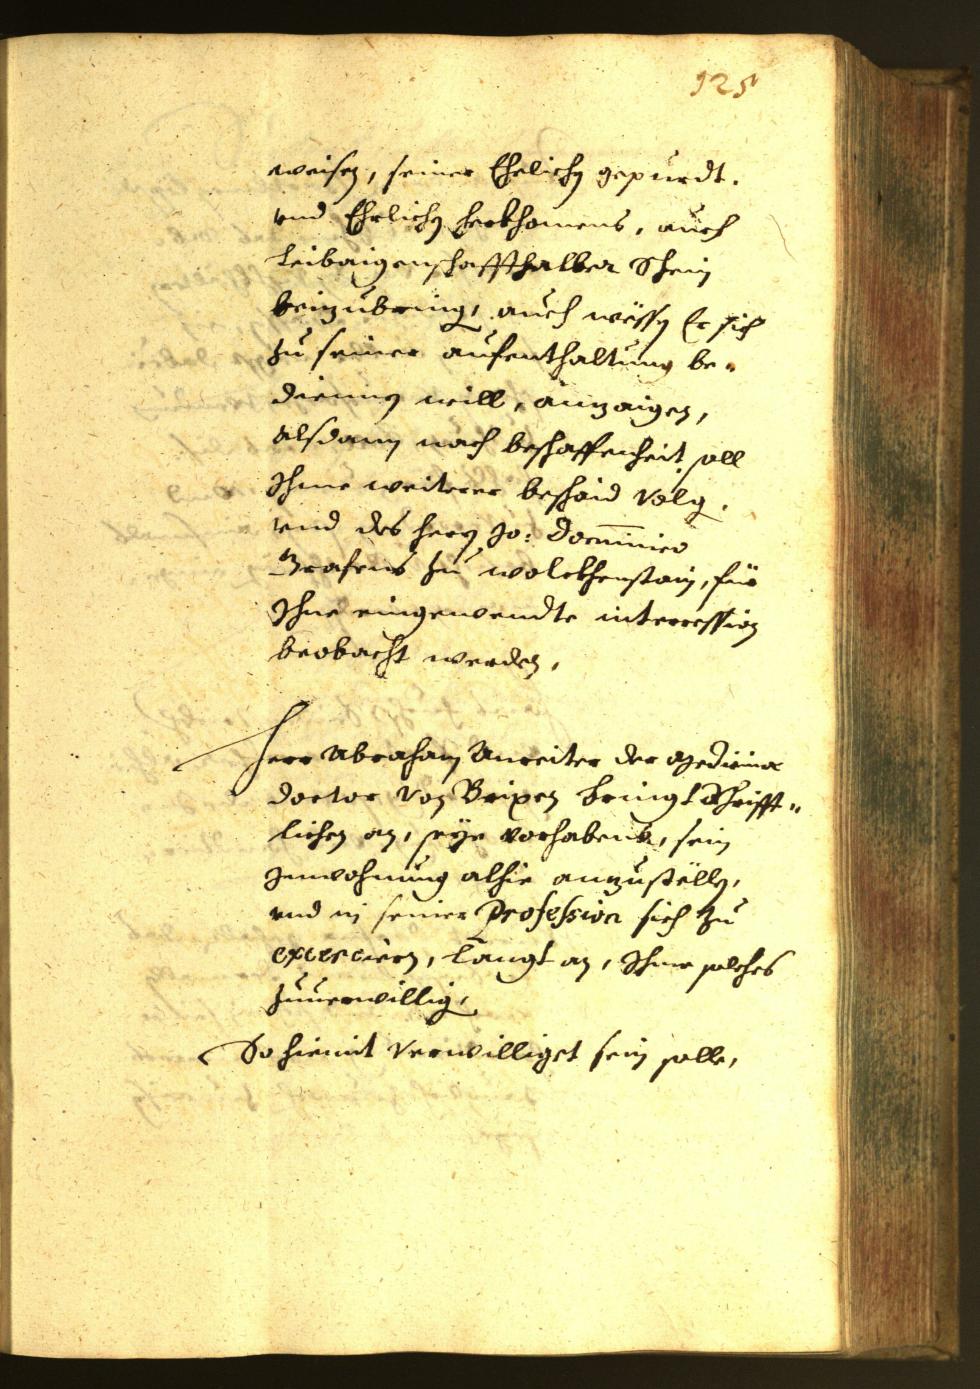 925
weisen, seiner Ehelichen gepurdt.
vnd Ehrlichen herkhomens, auch
Leibaigenschaffthalber Schein
beizubringen, auch wessen Er sich
zu seiner aufenthaltung be„
dienen will, anzaigen,
Alsdann nach beschaffenheit soll
Ihme weiterer beschaid volgen.
vnd des herrn Jo: Dominico
Grafens zu wolckhenstain, für
Ihne eingewendte intercession
beobacht werden,
Herr Abraham Anreiter der Medicinae
doctor von Brixen bringt Schrifft„
lichen an, seye vorhabens, sein
Inwohnung alhie anzustellen,
vnd in seiner Profession sich zu
exerciern, Langt an, Ihme solches
zuuerwilligen,
So hiemit verwilliget sein solle,